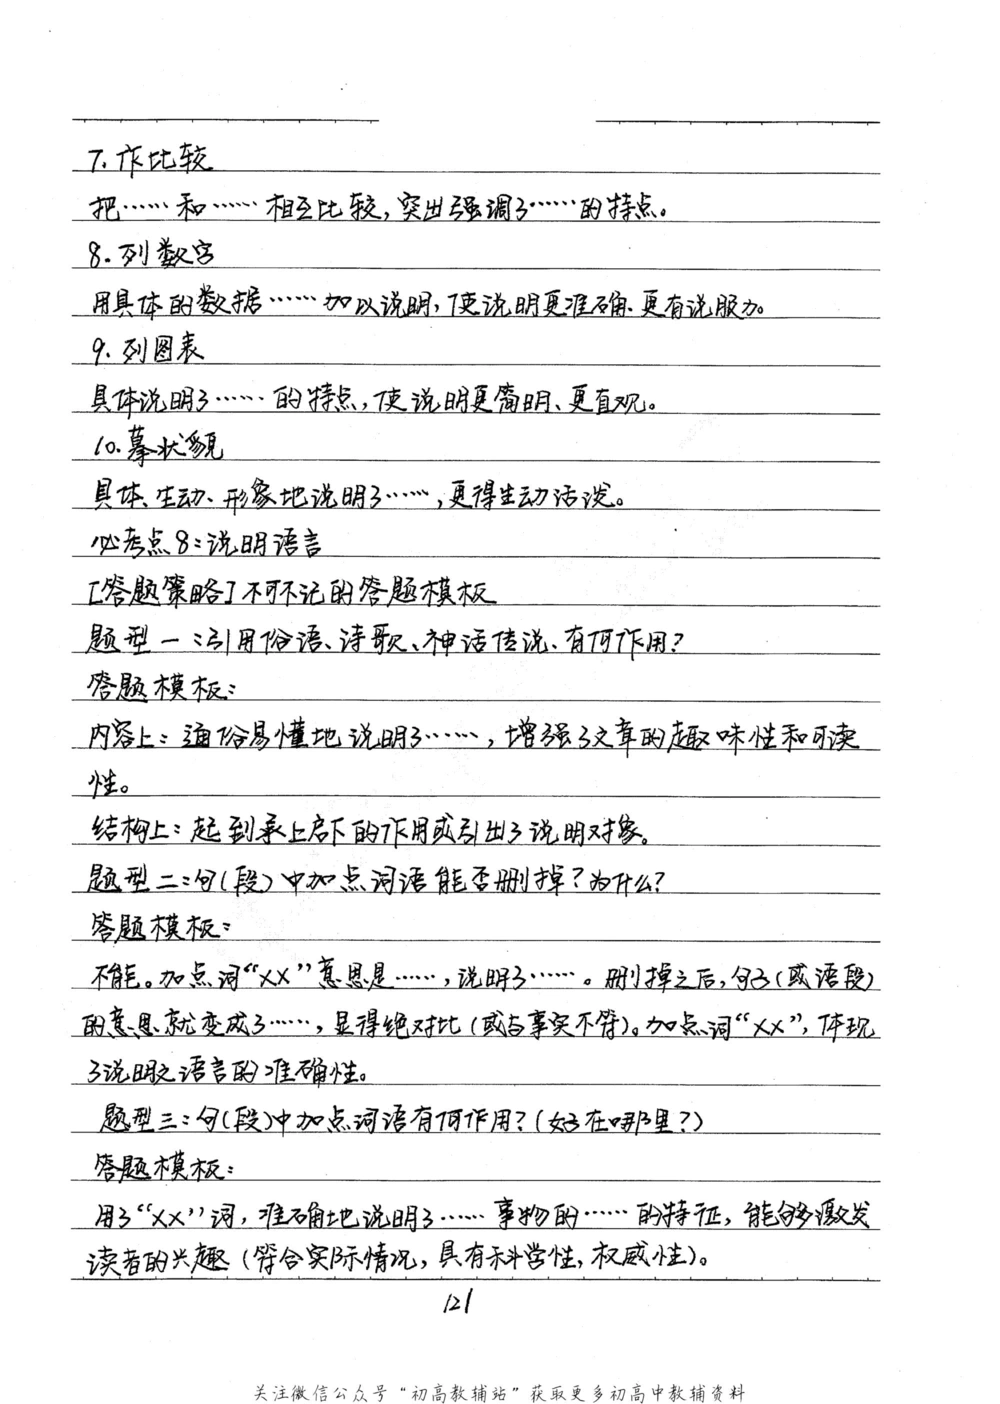 7、作比较
把……和……相互比较,突出强调了……的特点。
8.列数字
用具体的数据……加以说明,使说明更准确、更有说服力。
9.列图表
具体说明了……的特点,使说明更简明、更直观。
10.摹状貌
具体、生动、形象地说明了……,更得生动活泼。
必考点8:说明语言
[答题策略]不可不记的答题模板
题型一:引用俗语、诗歌、神话传说、有何作用?
答题模板:
内容上:通俗易懂地说明了……,增强了文章的趣味性和可读
性。
结构上:起到承上启下的作用或引出了说明对象。
题型二:句(段)中加点词语能否删掉?为什么?
答题模板:
不能。加点词“XX”意思是……,说明了……。删掉之后,句子(或语段)
的意思就变成了……,显得绝对比(或与事实不符)。加点词“XX”,体现
了说明文语言的准确性。
题型三:句(段)中加点词语有何作用?(好在哪里?)
答题模板:
用了“XX”词,准确地说明了……事物的……的特征,能够激发
读者的兴趣(符合实际情况,具有科学性,权威性)。
121
关注微信公众号“初高教辅站”获取更多初高中教辅资料